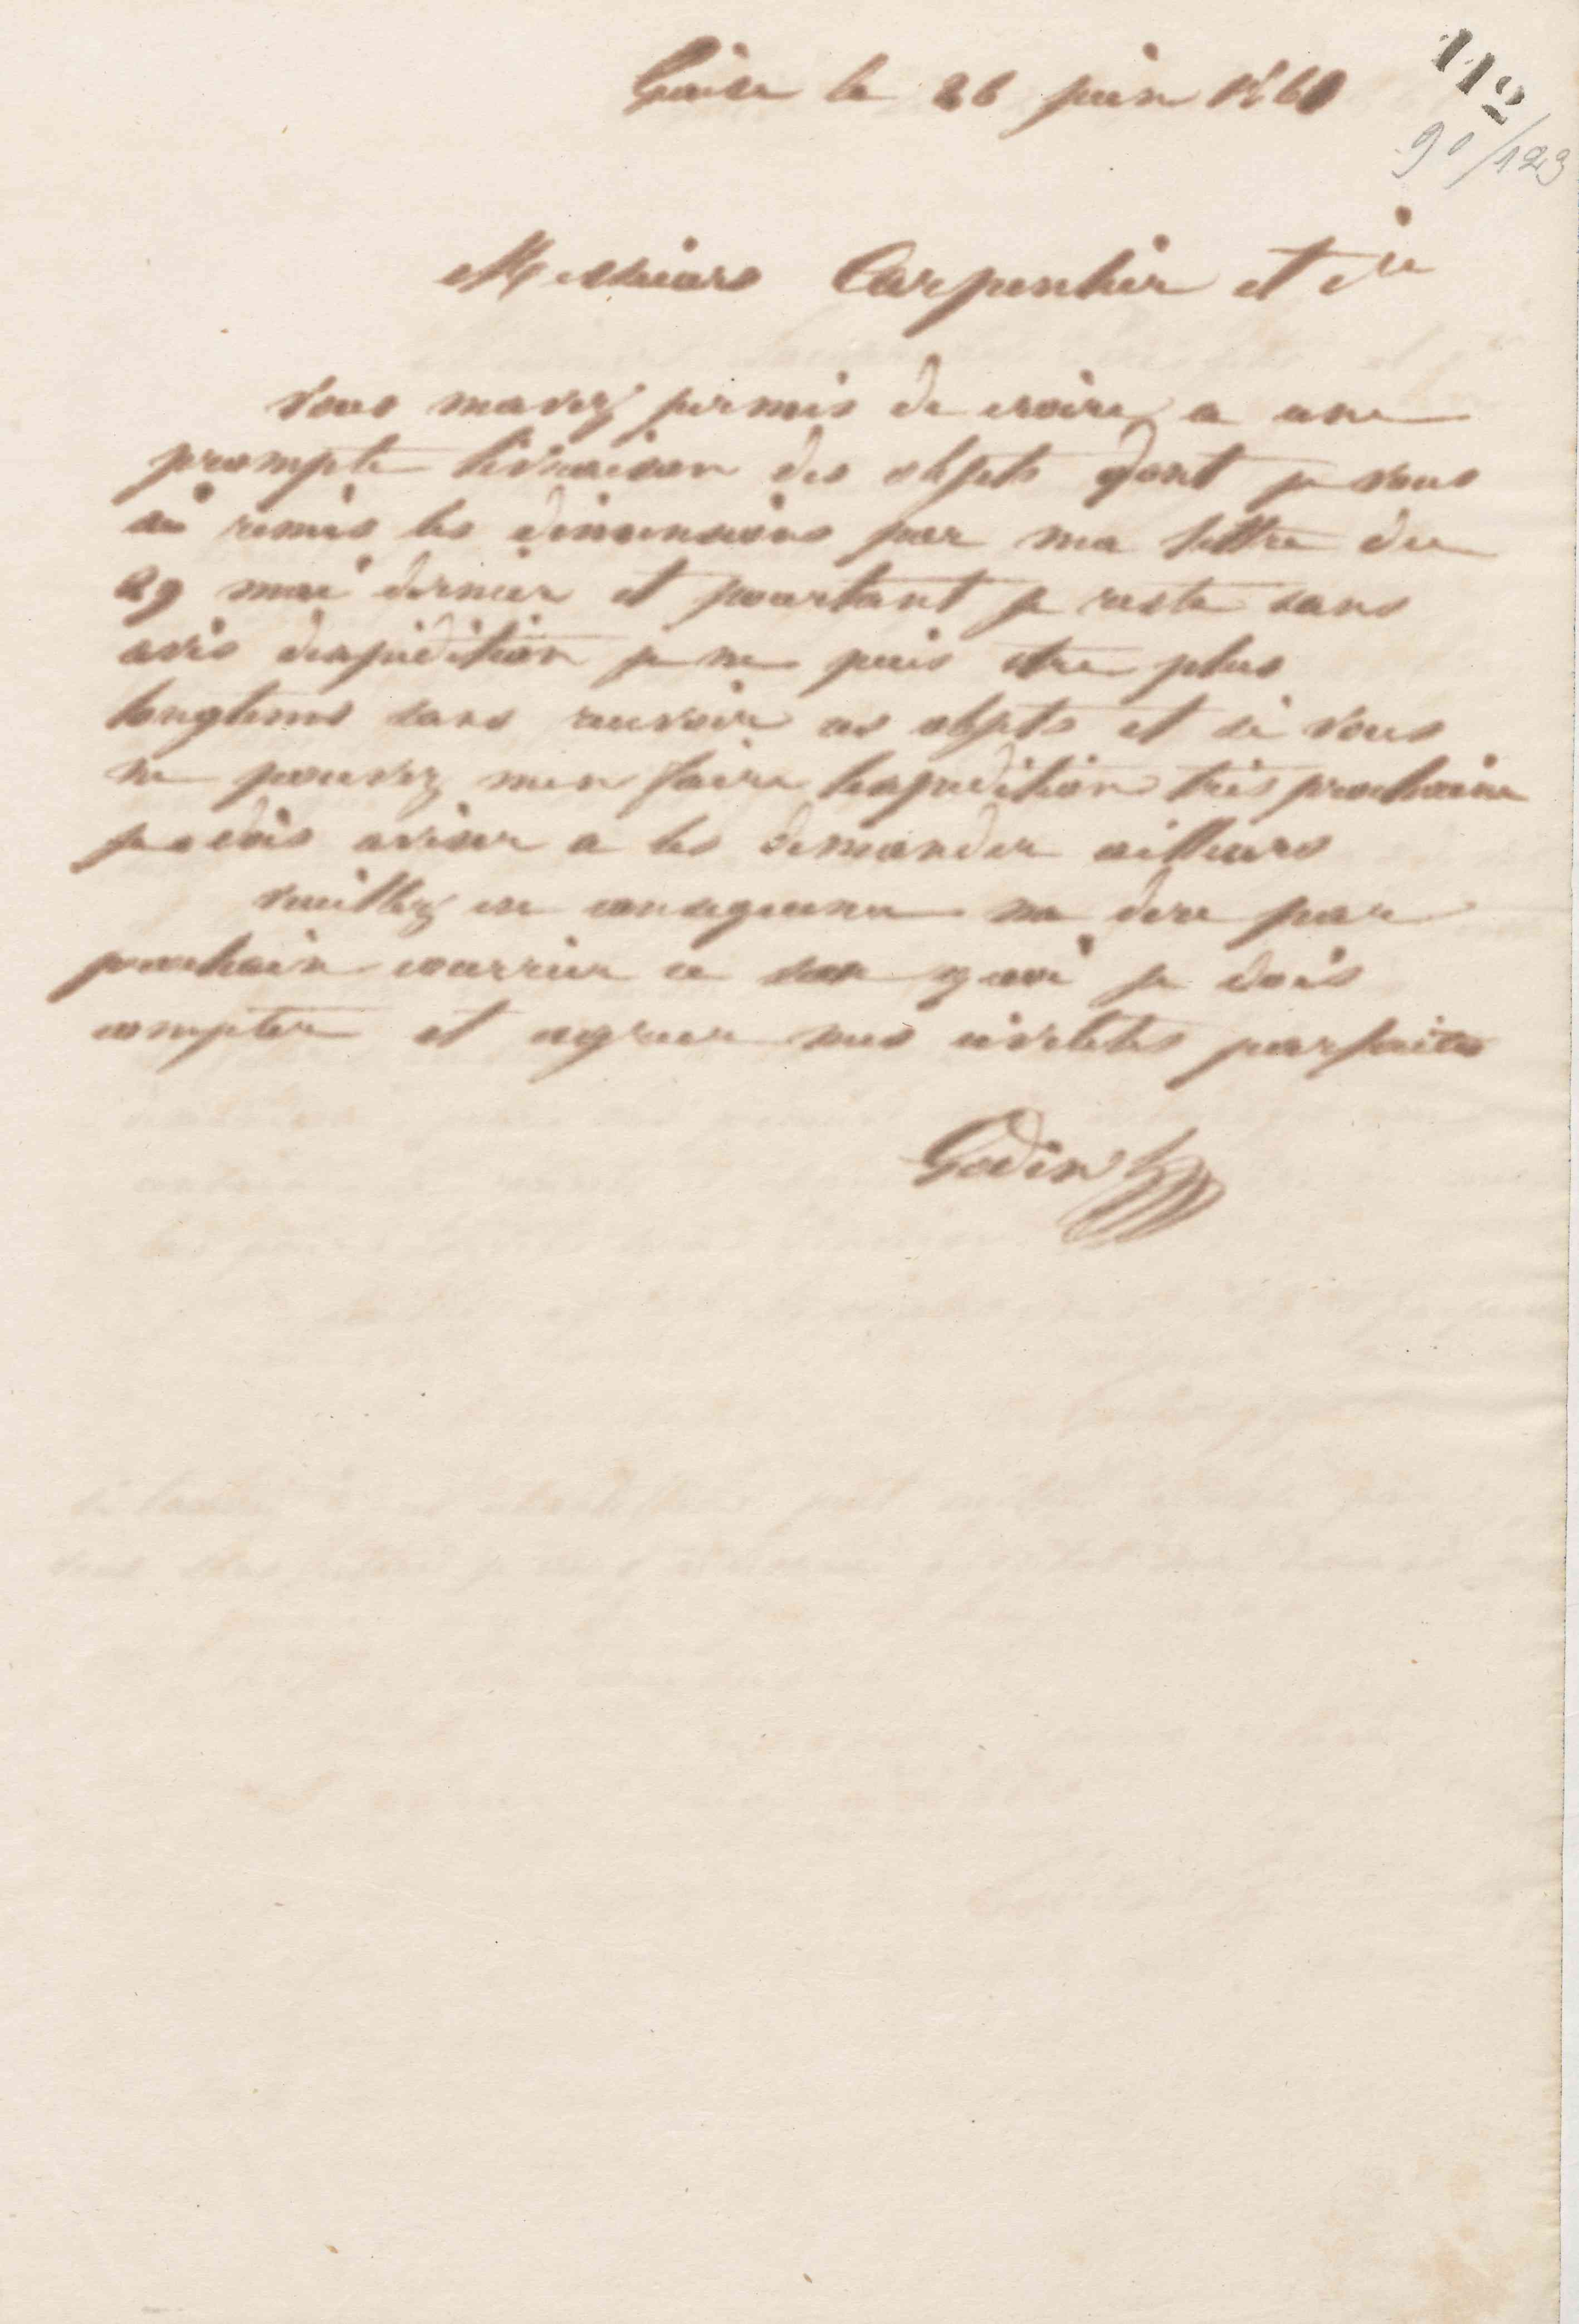 Guise le 26 juin 1860
112
90/123
Messieurs Carpentier et Cie
Vous mavez permis de croire a une
prompte livraison des objets dont je vous
ai remis les dimensions par ma lettre du
29 mai dernier et pourtant je reste sans
avis dexpédition je ne puis etre plus
longtems sans recevoir ces objets et si vous
ne pouvez men faire lexpedition très prochaine
je dois aviser a les demander ailleurs
Veuillez en consequence me dire par
prochain courrier a quoi je dois
compter et agreer mes civilités parfaites
Godin